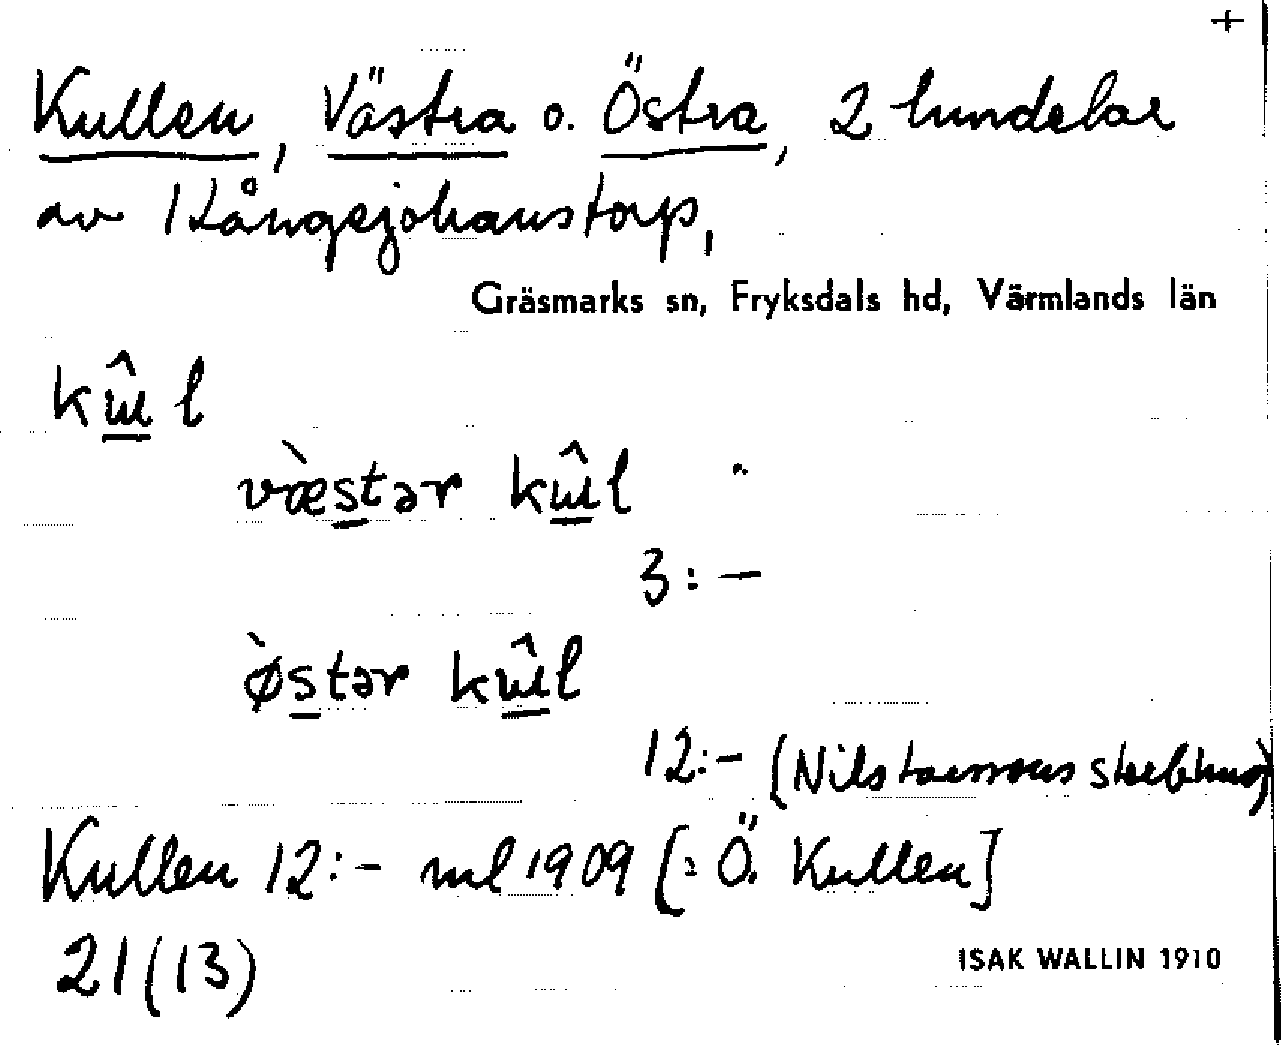 +
Kullen, Västra o. Östra, 2 hmdelar
av Kångejohanstorp,
Gräsmarks sn, Fryksdals hd, Värmlands län
kɯ̂l
væ̀stər kɯ̂l
3:-
ø̀stər kɯ̂l
12:- (Nils
Kullen 12:- ml 1909 [: Ö. Kullen]
21(13)
ISAK WALLIN 1910